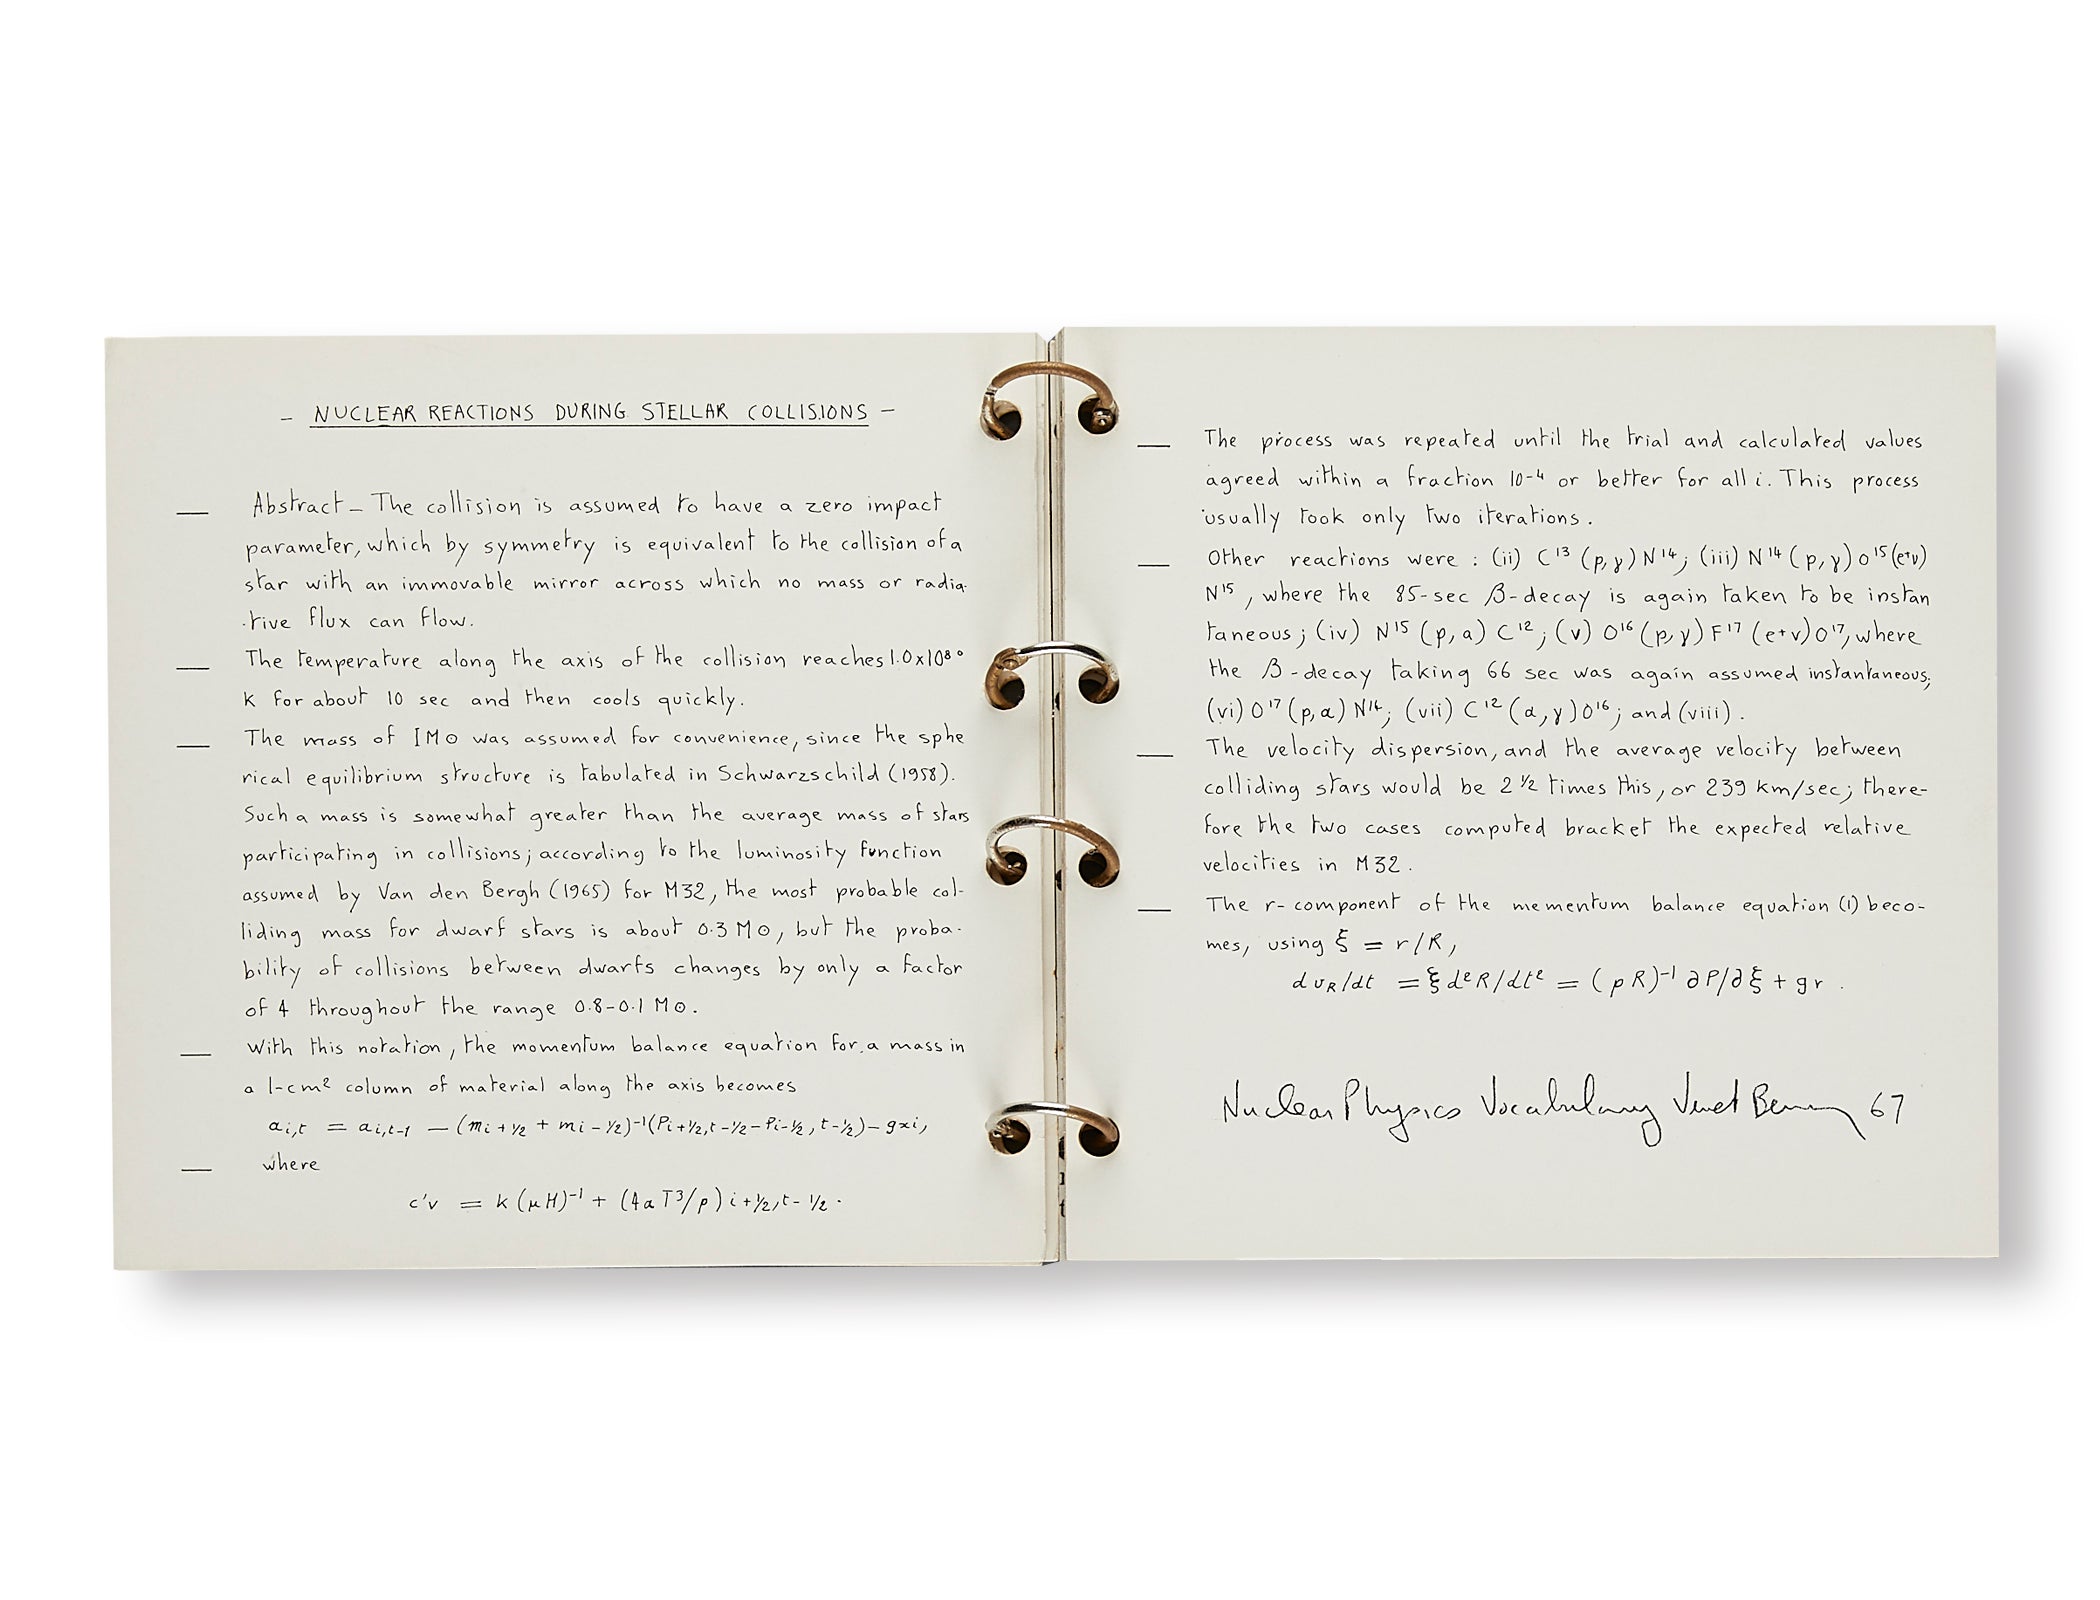 - NUCLEAR REACTIONS DURING STELLAR COLLISIONS -
— Abstract - The collision is assumed to have a zero impact
parameter, which by symmetry is equivalent to the collision of a
star with an immovable mirror across which no mass or radia-
tive flux can flow.
— The temperature along the axis of the collision reaches 1.0x10⁸°
K for about 10 sec and then cools quickly.
— The mass of 1M⊙ was assumed for convenience, since the sphe
rical equilibrium structure is tabulated in Schwarzschild (1958).
Such a mass is somewhat greater than the average mass of stars
participating in collisions; according to the luminosity function
assumed by Van den Bergh (1965) for M32, the most probable col-
liding mass for dwarf stars is about 0.3 M⊙, but the proba-
bility of collisions between dwarfs changes by only a factor
of 4 throughout the range 0.8-0.1 M⊙.
— With this notation, the momentum balance equation for a mass in
a 1-cm² column of material along the axis becomes
ai,t = ai,t-1 - (mi+1/2 + mi-1/2)⁻¹(Pi+1/2,t-1/2-Pi-1/2,t-1/2)-gxi,
— where
c'v = k(μH)⁻¹ + (4aT³/ρ)i+1/2,t-1/2.
— The process was repeated until the trial and calculated values
agreed within a fraction 10-4 or better for all i. This process
usually took only two iterations.
— Other reactions were : (ii) C¹³(p,γ)N¹⁴; (iii) N¹⁴(p,γ)O¹⁵(e⁺ν)
N¹⁵, where the 85-sec β-decay is again taken to be instan
taneous; (iv) N¹⁵(p,α)C¹²; (v) O¹⁶(p,γ)F¹⁷(e+ν)O¹⁷, where
the β-decay taking 66 sec was again assumed instantaneous;
(vi) O¹⁷(p,α)N¹⁴; (vii) C¹²(α,γ)O¹⁶; and (viii).
— The velocity dispersion, and the average velocity between
colliding stars would be 2 ½ times this, or 239 km/sec; there-
fore the two cases computed bracket the expected relative
velocities in M32.
— The r-component of the mementum balance equation (1) beco-
mes, using ξ = r/R,
dvR/dt = ξd²R/dt² = (ρR)⁻¹∂P/∂ξ + gr.
Nuclear Physics Vocabulary Venet Bernar 67